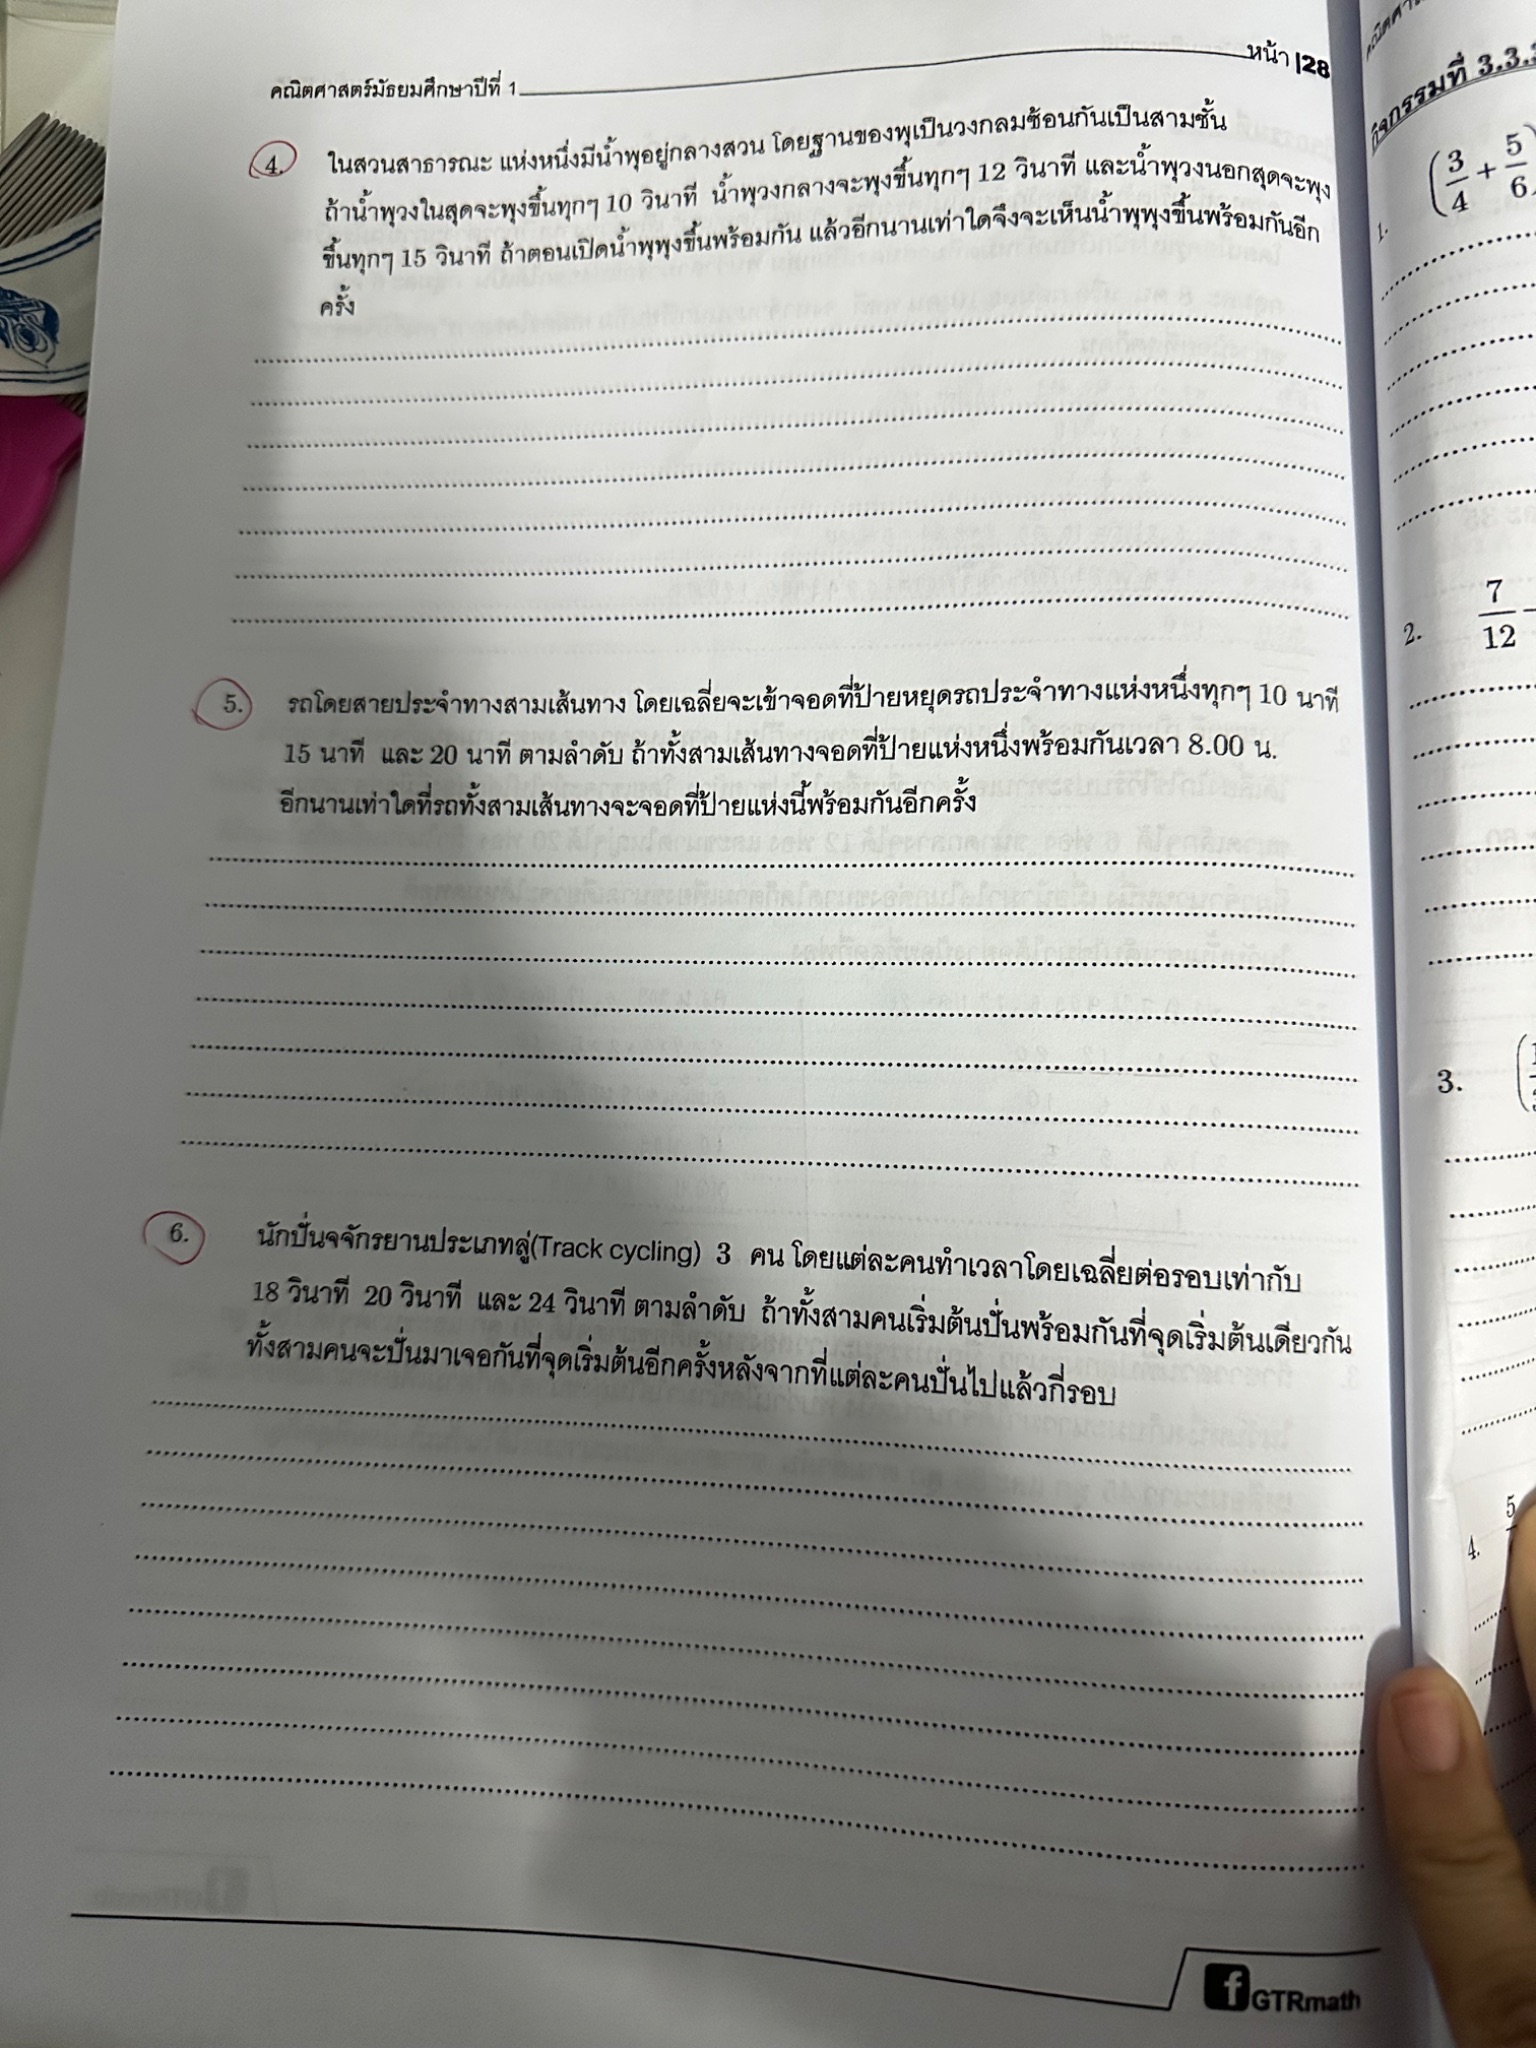 คณิตศาสตร์มัธยมศึกษาปีที่ 1
หน้า |28
4. ในสวนสาธารณะ แห่งหนึ่งมีน้ำพุอยู่กลางสวน โดยฐานของพุเป็นวงกลมซ้อนกันเป็นสามชั้น
ถ้าน้ำพุวงในสุดจะพุงขึ้นทุกๆ 10 วินาที น้ำพุวงกลางจะพุงขึ้นทุกๆ 12 วินาที และน้ำพุวงนอกสุดจะพุง
ขึ้นทุกๆ 15 วินาที ถ้าตอนเปิดน้ำพุพุงขึ้นพร้อมกัน แล้วอีกนานเท่าใดจึงจะเห็นน้ำพุพุงขึ้นพร้อมกันอีก
ครั้ง
5. รถโดยสายประจำทางสามเส้นทาง โดยเฉลี่ยจะเข้าจอดที่ป้ายหยุดรถประจำทางแห่งหนึ่งทุกๆ 10 นาที
15 นาที และ 20 นาที ตามลำดับ ถ้าทั้งสามเส้นทางจอดที่ป้ายแห่งหนึ่งพร้อมกันเวลา 8.00 น.
อีกนานเท่าใดที่รถทั้งสามเส้นทางจะจอดที่ป้ายแห่งนี้พร้อมกันอีกครั้ง
6. นักปั่นจจักรยานประเภทลู่(Track cycling) 3 คน โดยแต่ละคนทำเวลาโดยเฉลี่ยต่อรอบเท่ากับ
18 วินาที 20 วินาที และ 24 วินาที ตามลำดับ ถ้าทั้งสามคนเริ่มต้นปั่นพร้อมกันที่จุดเริ่มต้นเดียวกัน
ทั้งสามคนจะปั่นมาเจอกันที่จุดเริ่มต้นอีกครั้งหลังจากที่แต่ละคนปั่นไปแล้วกี่รอบ
f GTRmath
กิจกรรมที่ 3.3.
1. (3/4 + 5/6
2. 7/12 -
3.
4. 5